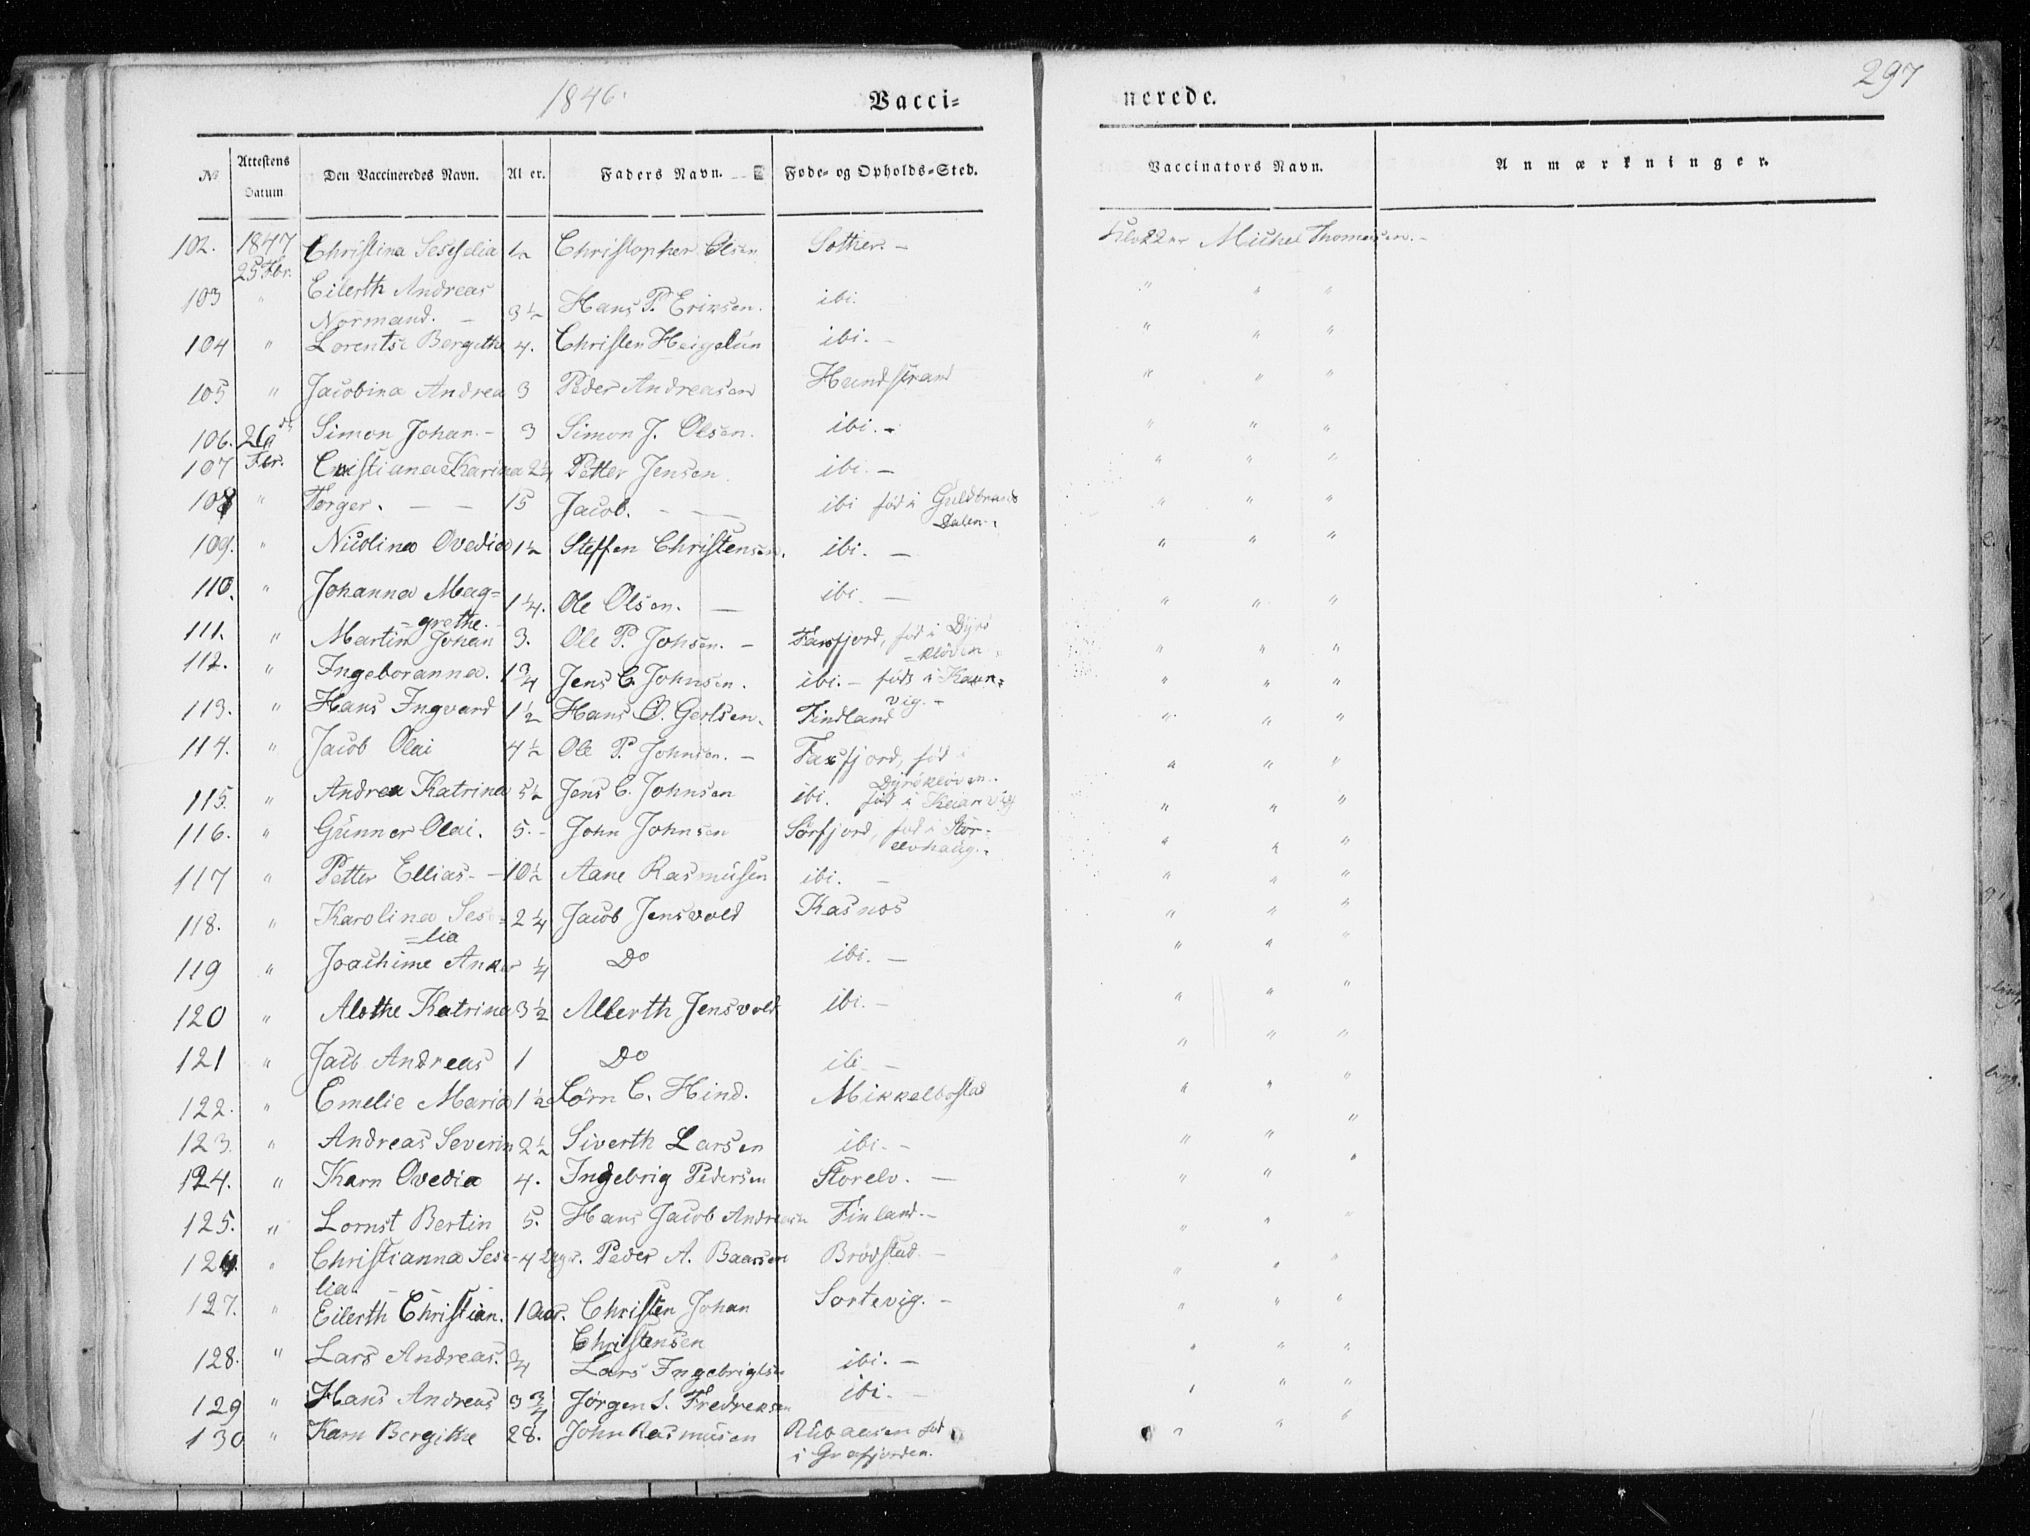 1846.
Vacci=
nerede.
297
No
Attestens Datum
Den Vaccineredes Navn.
Al er.
Faders Navn.
Fode- og Opholds-Sted.
Vaccinators Navn.
Anmærkninger.
102. 1847 25 Fbr. Christina Seselia ½ Christopher Olsen Sother. - Klokker Michel Thomesen. -
103 " Eilerth Andreas Normand. - 3½ Hans P. Eriksen. ibi. " " "
104 " Lorentse Bergithe 4. Christen Heigelün ibi. - " " "
105 " Jacobina Andrea 3 Peder Andreasen Hundstrand " " "
106. 26de Simon Johan. - 3 Simon J. Olsen. ibi. - " " "
107 Fbr. Cristiana Karina 2¼ Petter Jensen. ibi. - " " "
108 " Torger. - - 15 Jacob. - - - ibi fød i Guldbrands
Dalen. " " "
109. " Nicolina Ovedia 1½ Steffen Christensen. ibi. - " " "
110. " Johanna Mag=
grethe. 1¼. Ole Olsen. - ibi. - " " "
111. " Martin Johan 3. Ole P. Johsen. - Faxfjord, fød i Dyrs
=kløven " " "
112. " Ingeboranna. 1¾ Jens C. Johnsen. ibi. - fød i Kaar=
vig. - " " "
113. " Hans Ingvard 1½ Hans O. Gerlsen. Findland " " "
114. " Jacob Olai 4½ Ole P. Johnsen. - Faxfjord, fød i
Dyrskløven. " " "
115. " Andrea Katrina 5½ Jens C. Johnsen ibi. fød i Kaarvig " " "
116. " Günner Olai. 5. - John Johnsen Sørfjord, fød i Stor=
elvhaug. " " "
117 " Petter Ellias. - 10½ Aane Rasmüsen ibi. - " " "
118. " Karolina Sese=
=lia 2¼ Jacob Jensvold Kasnos " " "
119 " Joachime Anker ¼ Do ibi. - " " "
120 " Alethe Katrina 3½ Allerth Jensvold ibi. - " " "
121 " Jacb Andreas 1 Do ibi. - " " "
122. " Emelie Maria 1½ Cörn C. Hind. Mikkelbostad " " "
123. " Andreas Severin 2½ Siverth Larsen ibi. - " " "
124. " Karn Ovedia 4. Ingebrig Pedersen Storelv. - " " "
125. " Lornst Bertin 5. Hans Jacob Andreasen Finland. - " " "
126. " Christianna Sese-
lia. - - 4 Uger. Peder A. Baarsen Brödstad. - " " "
127. " Eilerth Christian. 1 Aar. Christen Johan
Christensen Sortevig. - " " "
128. " Lars Andreas. ¾ Lars Ingebrigtsen ibi. - " " "
129 " Hans Andreas 3¾ Jørgen S. Fredreksen ibi. - " " "
130 " Karn Bergithe 28. John Rasmüsen Rübaasen fød
i Grafjorden. " " "